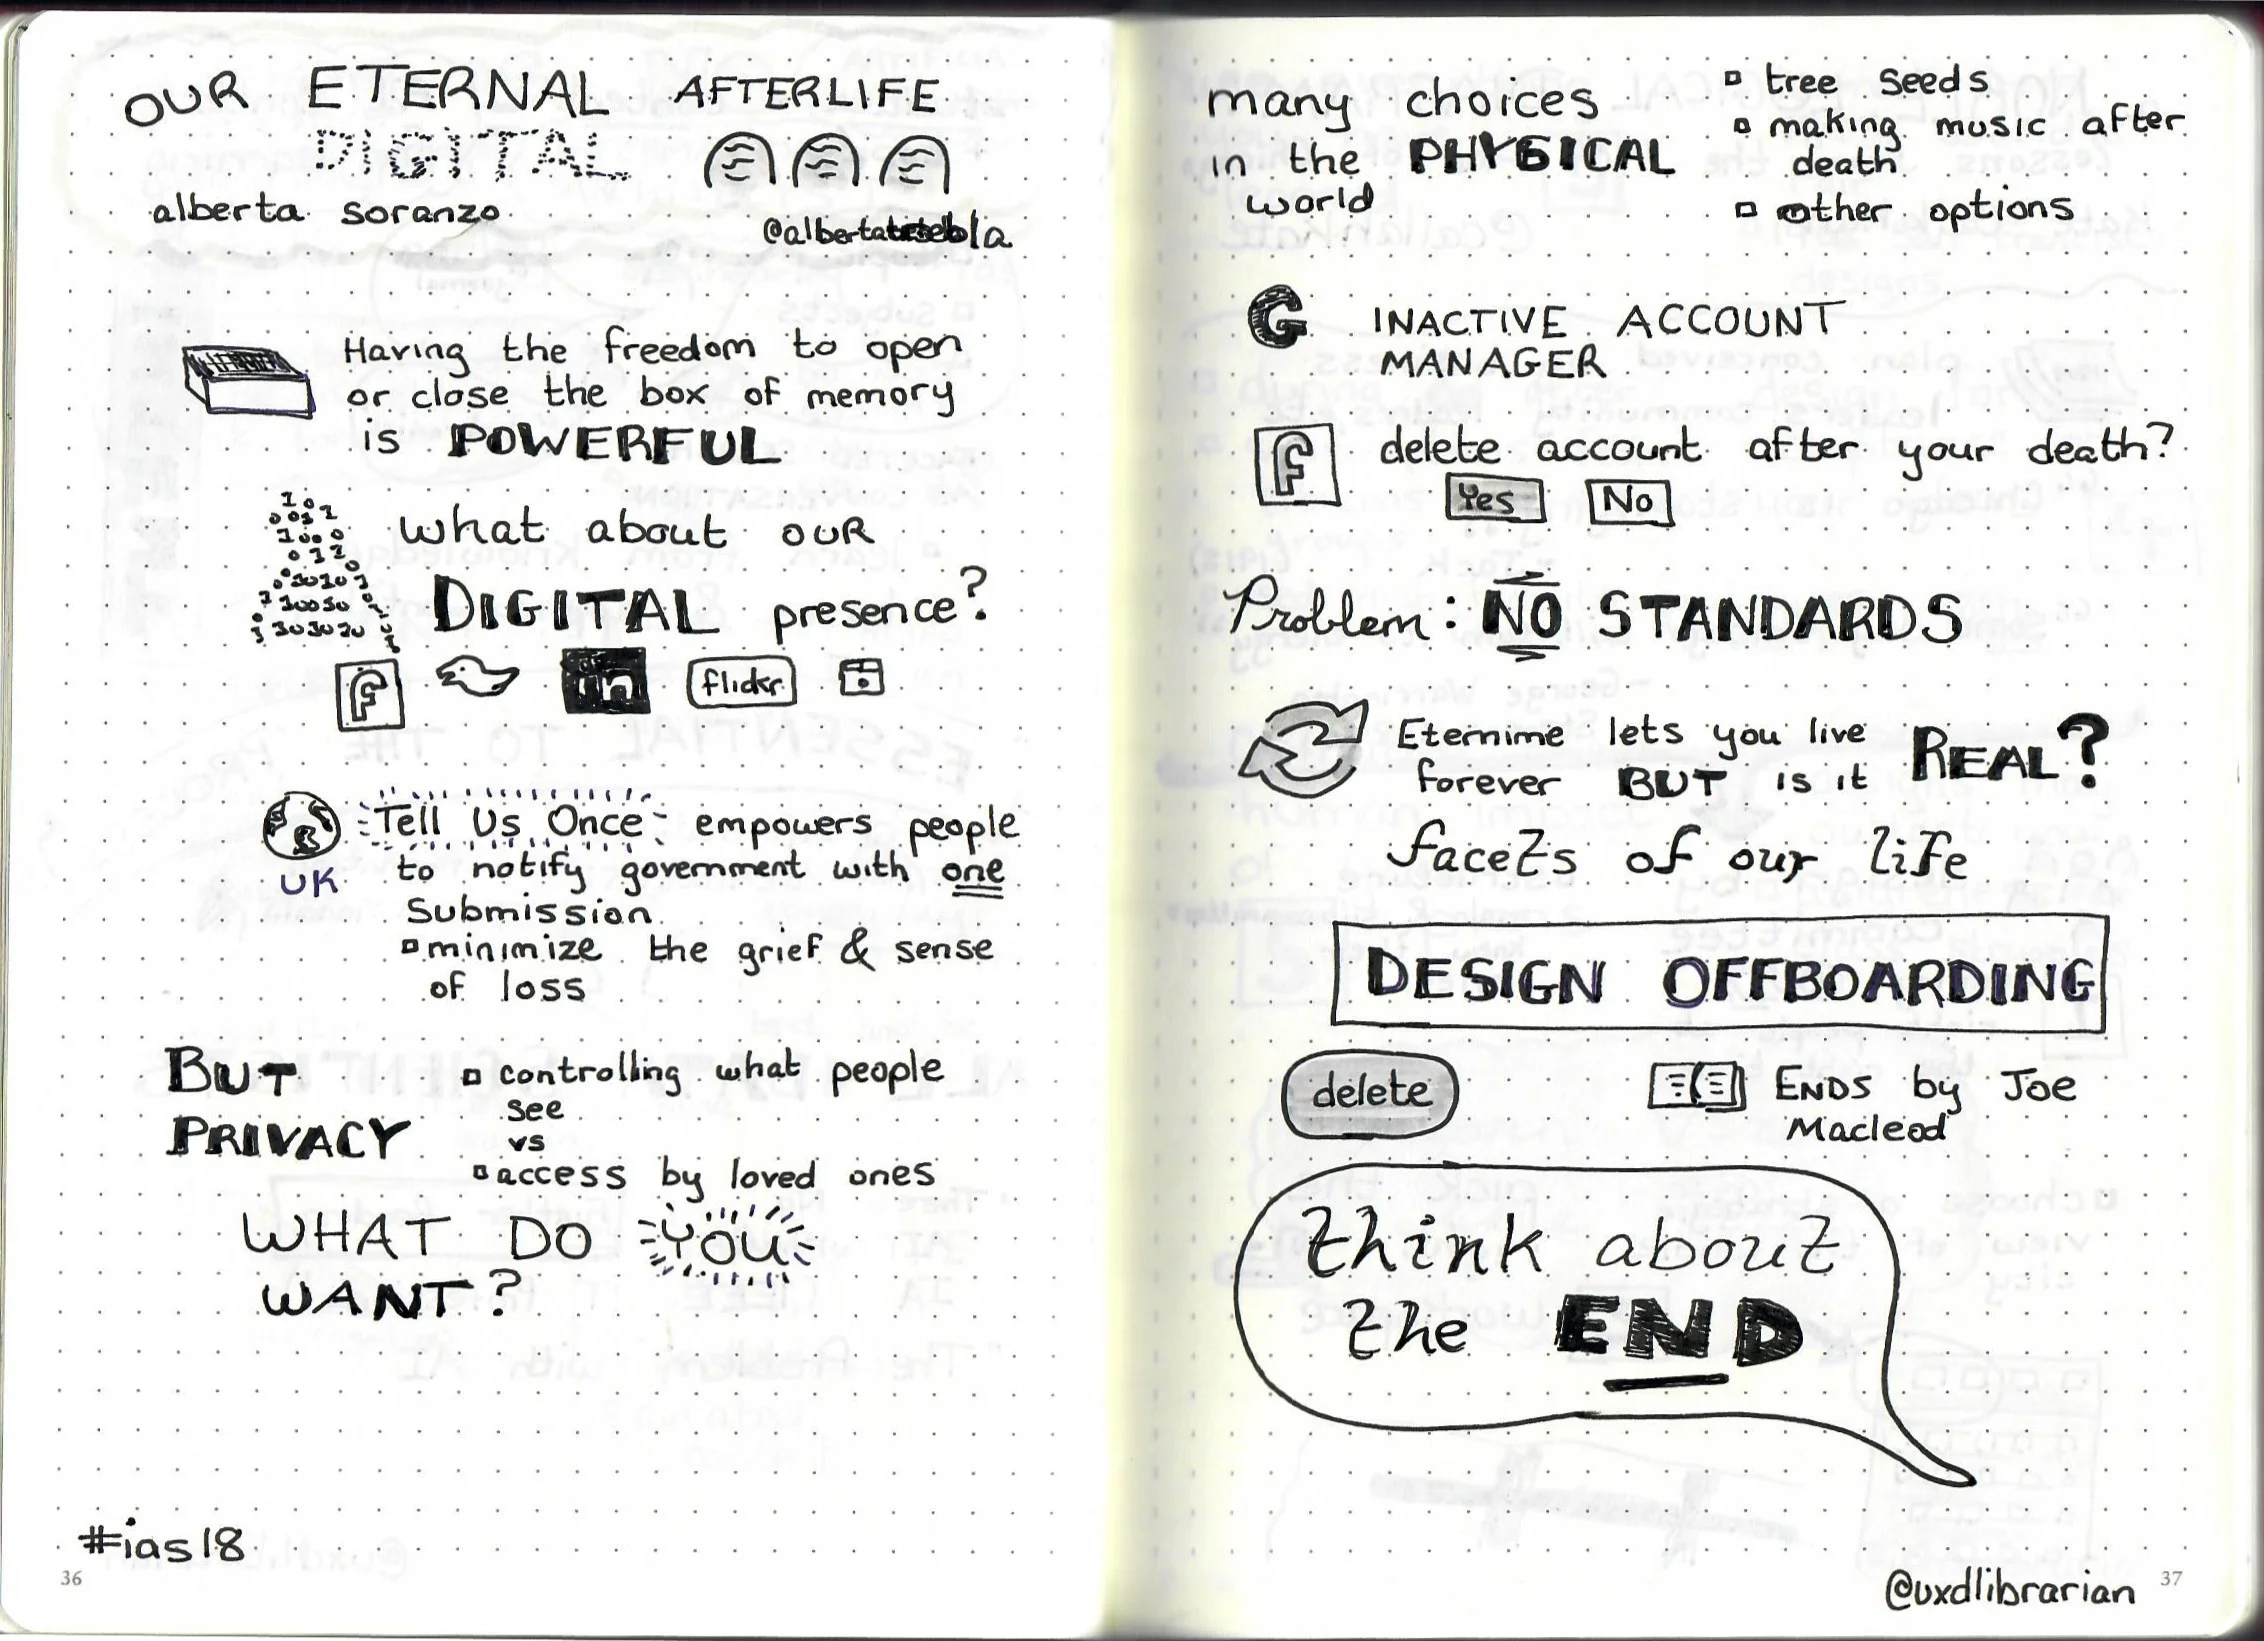 OUR ETERNAL AFTERLIFE
DIGITAL
alberta soranzo
Having the freedom to open
or close the box of memory
is POWERFUL
what about OUR
DIGITAL presence?
f in flickr
Tell Us Once empowers people
UK to notify government with one
submission
minimize the grief & sense
of loss
BUT
PRIVACY
controlling what people
see
vs
access by loved ones
WHAT DO YOU
WANT?
#ias18
36
many choices
in the PHYSICAL
world
tree seeds
making music after
death
other options
G INACTIVE ACCOUNT
MANAGER
f delete account after your death?
Yes No
Problem: NO STANDARDS
Eternime lets you live
forever BUT is it REAL?
facets of our life
DESIGN OFFBOARDING
delete
ENDS by Joe
Macleod
think about
the END
@uxdlibrarian
37